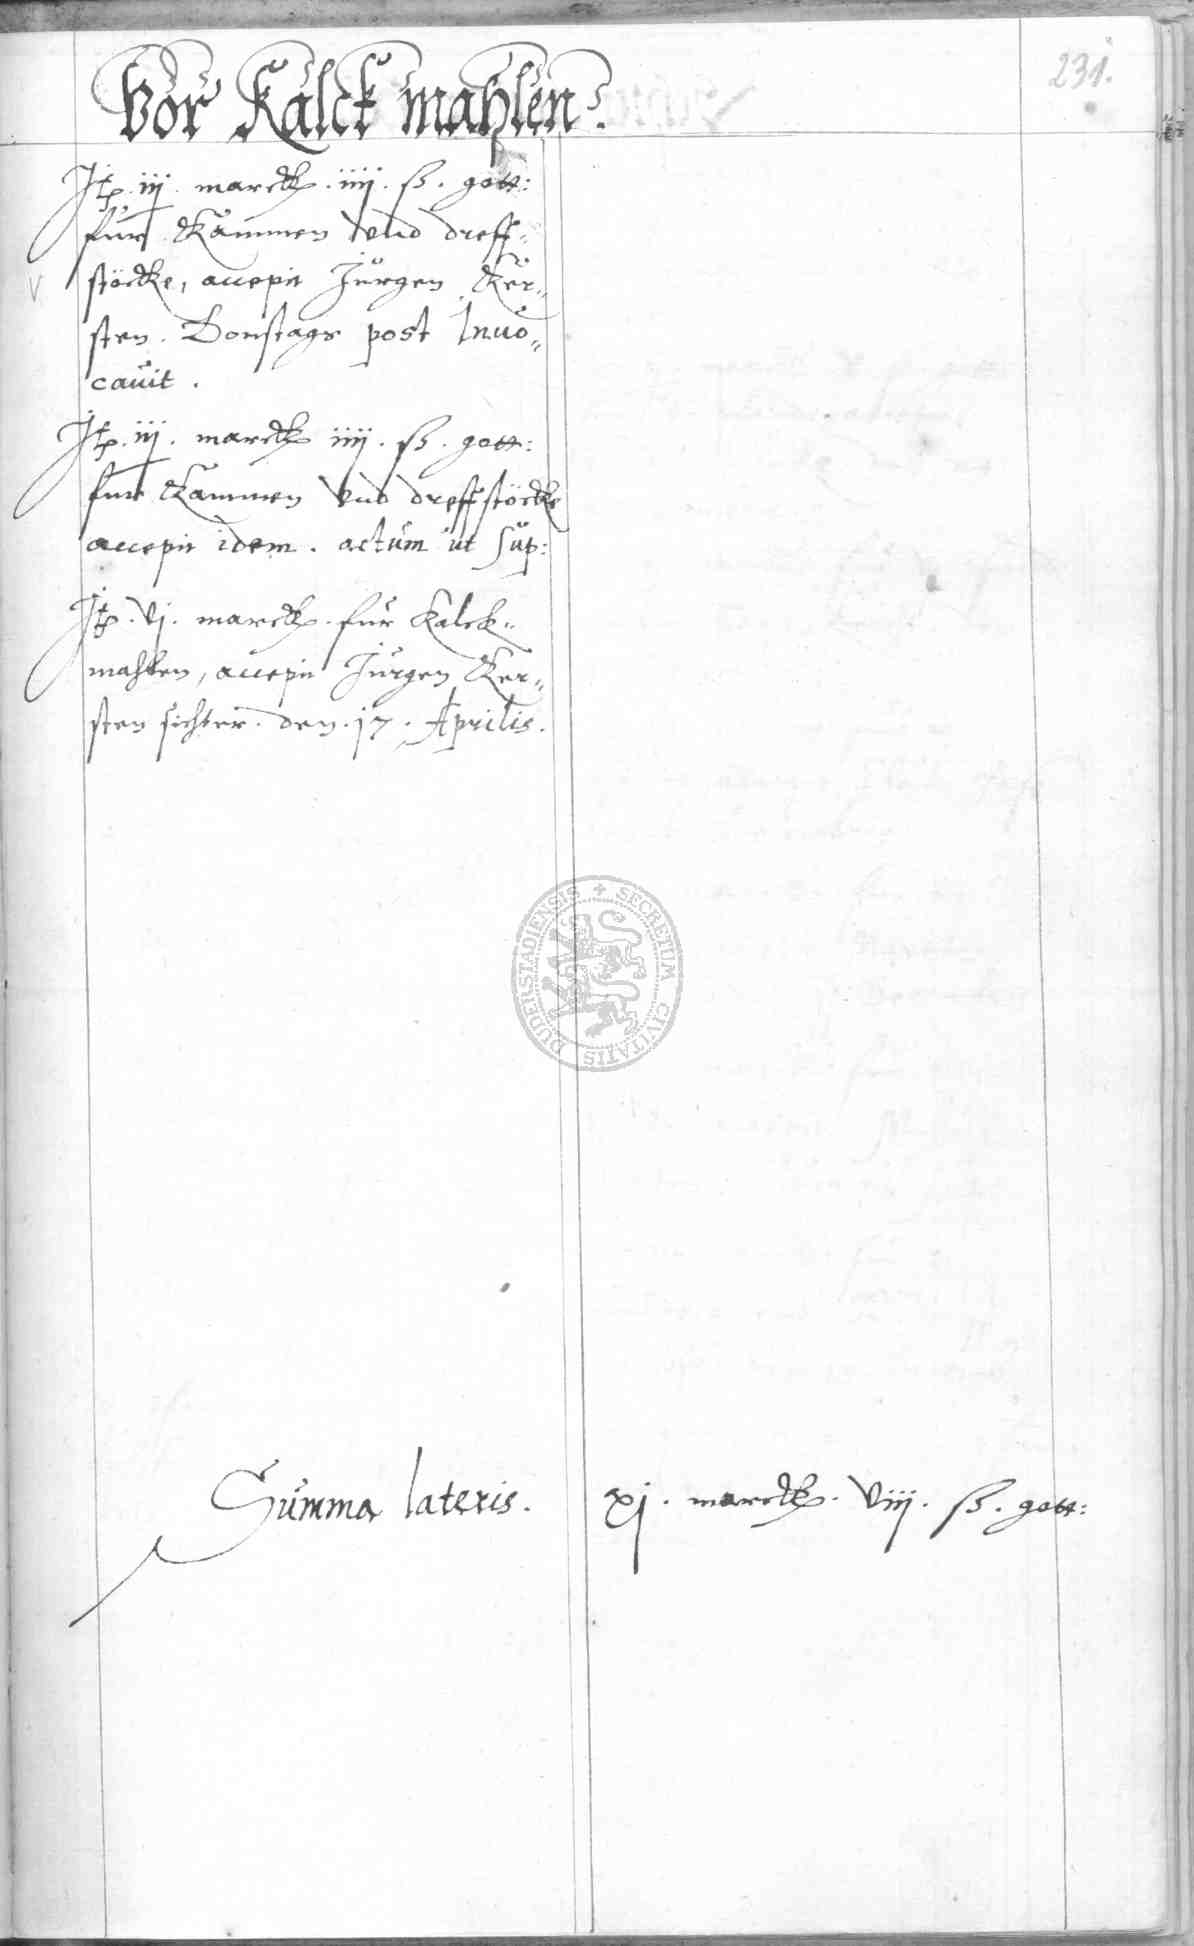 231.
Vor Kalck mahlen.
Itp. iij. marck. iiij. ß. gott:
fur Kammen vnd dreff-
stöcke, accepit Jurgen Ker-
sten. Donstags post Inuo-
cauit.
Itp. iij. marck iiij. ß. gott:
fur Kammen vnd dreffstöcke
accepit idem. actum ut sup:
Itp. vj. marck. fur Kalck-
mahlen, accepit Jurgen Ker-
sten sichter. den. 17. Aprilis.
SECRETUM CIVITATIS DUDERSTADIENSIS
Summa lateris. xj. marck. viij. ß. gott: